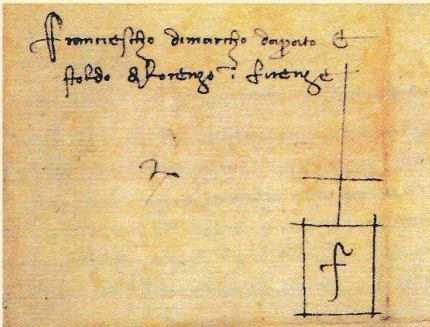 Franciescho dimarcho daprato E
stoldo di Lorenzo i firenze
f